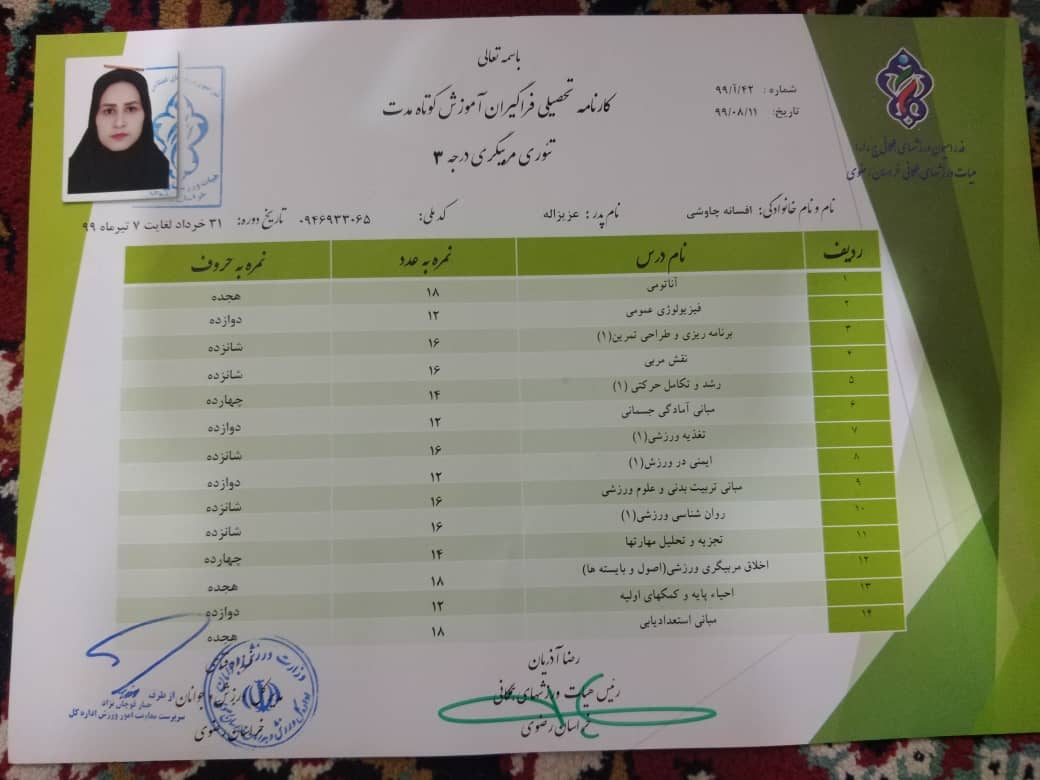 باسمه تعالی
کارنامه تحصیلی فراگیران آموزش کوتاه مدت
تئوری مربیگری درجه ۳
شماره: ۹۹/آ/۴۲
تاریخ: ۹۹/۰۸/۱۱
فدراسیون ورزشهای همگانی ج.ا.ا
هیات ورزشهای همگانی خراسان رضوی
نام و نام خانوادگی: افسانه چاوشی نام پدر: عزیزاله کد ملی: ۰۹۴۶۹۳۳۰۶۵ تاریخ دوره: ۳۱ خرداد لغایت ۷ تیرماه ۹۹
ردیف نام درس نمره به عدد نمره به حروف
۱ آناتومی ۱۸ هجده
۲ فیزیولوژی عمومی ۱۲ دوازده
۳ برنامه ریزی و طراحی تمرین(۱) ۱۶ شانزده
۴ نقش مربی ۱۶ شانزده
۵ رشد و تکامل حرکتی (۱) ۱۴ چهارده
۶ مبانی آمادگی جسمانی ۱۲ دوازده
۷ تغذیه ورزشی(۱) ۱۶ شانزده
۸ ایمنی در ورزش(۱) ۱۲ دوازده
۹ مبانی تربیت بدنی و علوم ورزشی ۱۶ شانزده
۱۰ روان شناسی ورزشی(۱) ۱۶ شانزده
۱۱ تجزیه و تحلیل مهارتها ۱۴ چهارده
۱۲ اخلاق مربیگری ورزشی(اصول و بایسته ها) ۱۸ هجده
۱۳ احیاء پایه و کمکهای اولیه ۱۲ دوازده
۱۴ مبانی استعدادیابی ۱۸ هجده
رضا آذریان
رئیس هیات ورزشهای همگانی
خراسان رضوی
مدیر کل ورزش و جوانان
خراسان رضوی
از طرف
سرپرست معاونت امور ورزش اداره کل
وزارت ورزش و جوانان